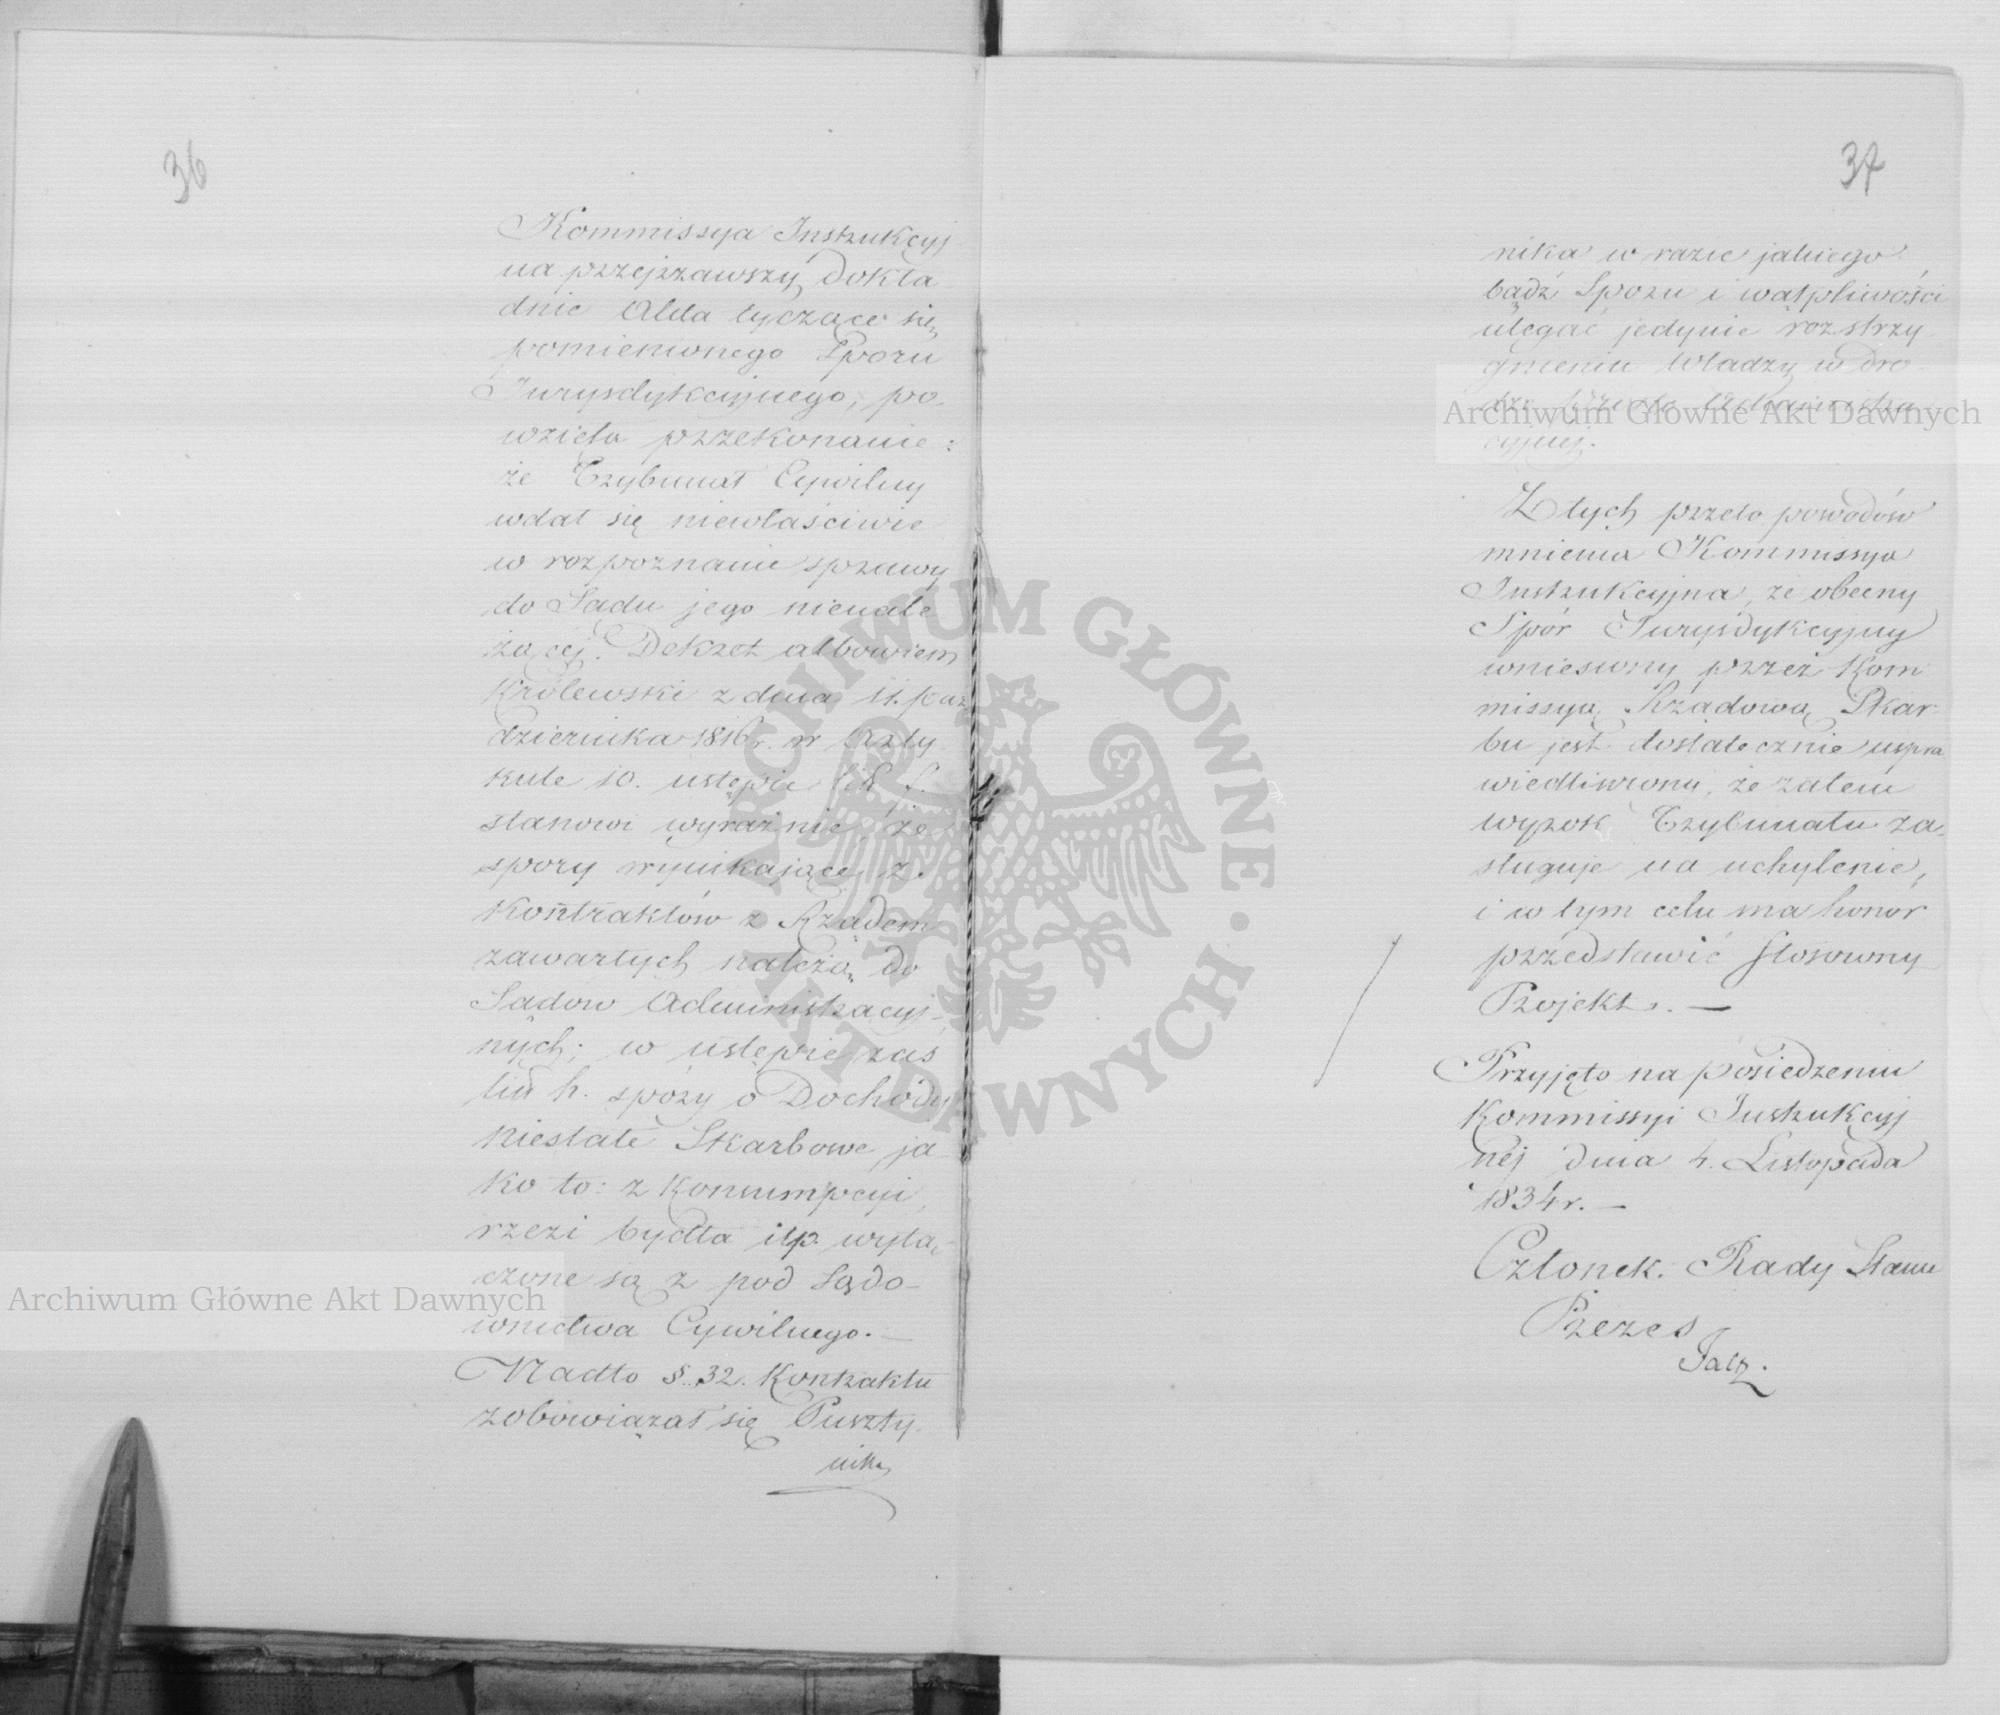 36
Kommissya Instrukcyj
na przejrzawszy dokła
dnie Akta tyczące się
pomienionego Sporu
Jurysdykcyjnego, po-
wzięła przekonanie:
że Trybunał Cywilny
wdał się niewłaściwie
w rozpoznanie sprawy
do Sądu jego nienale
żącej. Dekret albowiem
Królewski z dnia 11. paź
dziernika 1816 r. w Arty
kule 10. ustępie lit. f.
stanowi wyraźnie, że
spory wynikające z
Kontraktów z Rządem
zawartych należą do
Sądow Administracyj-
nych; w ustępie zaś
lit. h. spory o Dochody
niestałe Skarbowe, ja
ko to: z Konsumpcyi,
rzezi bydła itp. wyłą
czone są z pod Sądo-
wnictwa Cywilnego. —
Nadto §. 32. Kontraktu
zobowiązał się Puszty-
nika
37
nika w razie jakiego
bądź Sporu i wątpliwości
ulegać jedynie rozstrzy
gnieniu Władzy w dro
dze Administra
cyjnej.
Z tych przeto powodów
mniema Kommissya
Instrukcyjna, że obecny
Spór Jurysdykcyjny
wniesiony przez Kom
missyą Rządową Skar-
bu jest dostatecznie uspra
wiedliwiony, że zatem
wyrok Trybunału za-
sługuje na uchylenie,
i w tym celu ma honor
przedstawić stosowny
Projekt. —
Przyjęto na posiedzeniu
Kommissyi Instrukcyj
nej dnia 4. Listopada
1834 r. —
Członek Rady Stanu
Prezes
Archiwum Główne Akt Dawnych
Archiwum Główne Akt Dawnych
ARCHIWUM GŁÓWNE · AKT DAWNYCH ·